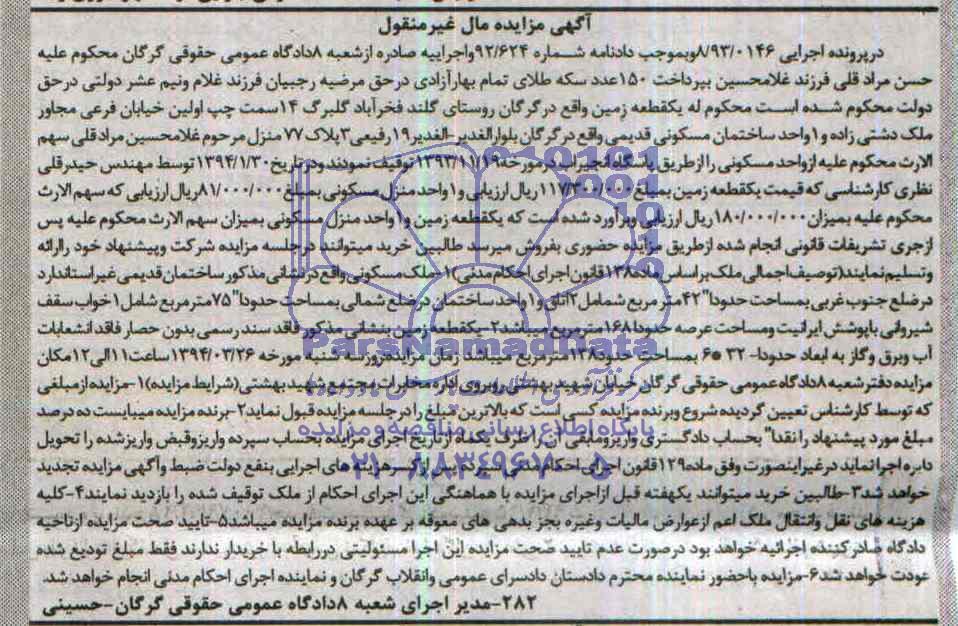 آگهی مزایده مال غیرمنقول
درپرونده اجرایی ۸/۹۳/۰۱۴۶وبموجب دادنامه شماره ۹۲/۶۲۴واجراییه صادره ازشعبه ۸دادگاه عمومی حقوقی گرگان محکوم علیه
حسن مراد قلی فرزند غلامحسین بپرداخت ۱۵۰عدد سکه طلای تمام بهارآزادی درحق مرضیه رجبیان فرزند غلام ونیم عشر دولتی درحق
دولت محکوم شده است محکوم له یکقطعه زمین واقع درگرگان روستای گلند فخرآباد گلبرگ ۱۴سمت چپ اولین خیابان فرعی مجاور
ملک دشتی زاده و۱واحد ساختمان مسکونی قدیمی واقع درگرگان بلوارالغدیر-الغدیر۱۹رفیعی۳پلاک۷۷منزل مرحوم غلامحسین مرادقلی سهم
الارث محکوم علیه ازواحد مسکونی راازطریق پاسگاه انجیراب درمورخه۱۳۹۳/۱۱/۱۹توقیف نمودند ودرتاریخ۱۳۹۴/۱/۳۰توسط مهندس حیدرقلی
نظری کارشناسی که قیمت یکقطعه زمین بمبلغ۱۱۷/۳۰۰/۰۰۰ریال ارزیابی و۱واحد منزل مسکونی بمبلغ۸۱/۰۰۰/۰۰۰ریال ارزیابی که سهم الارث
محکوم علیه بمیزان ۱۸۰/۰۰۰/۰۰۰ریال ارزیابی وبرآورد شده است که یکقطعه زمین و۱واحد منزل مسکونی بمیزان سهم الارث محکوم علیه پس
ازجری تشریفات قانونی انجام شده ازطریق مزایده حضوری بفروش میرسد طالبین خرید میتوانند درجلسه مزایده شرکت وپیشنهاد خود راارائه
وتسلیم نمایند(توصیف اجمالی ملک براساس ماده۱۳۸قانون اجرای احکام مدنی)۱-ملک مسکونی واقع درنشانی مذکور ساختمان قدیمی غیراستاندارد
درضلع جنوب غربی بمساحت حدودا"۴۲متر مربع شمامل۲اتاق و۱واحد ساختمان درضلع شمالی بمساحت حدودا"۷۵مترمربع شامل۱خواب سقف
شیروانی باپوشش ایرانیت ومساحت عرصه حدودا۱۶۸مترمربع میباشد۲-یکقطعه زمین بنشانی مذکور فاقد سند رسمی بدون حصار فاقد انشعابات
آب وبرق وگاز به ابعاد حدودا- ۳۲ * ۶ بمساحت حدود۱۳۸مترمربع میباشد زمان مزایده روز سه شنبه مورخه ۱۳۹۴/۰۳/۲۶ساعت۱۱الی۱۲مکان
مزایده دفترشعبه ۸دادگاه عمومی حقوقی گرگان خیابان شهید بهشتی روبروی اداره مخابرات مجتمع شهید بهشتی(شرایط مزایده)۱-مزایده ازمبلغی
که توسط کارشناس تعیین گردیده شروع وبرنده مزایده کسی است که بالاترین مبلغ را درجلسه مزایده قبول نماید۲-برنده مزایده میبایست ده درصد
مبلغ مورد پیشنهاد را نقدا" بحساب دادگستری واریزومابقی آن راظرف یکماه ازتاریخ اجرای مزایده بحساب سپرده واریزوقبض واریزشده را تحویل
دایره اجرانماید درغیراینصورت وفق ماده۱۲۹قانون اجرای احکام مدنی سپرده پس ازکسرهزینه های اجرایی بنفع دولت ضبط وآگهی مزایده تجدید
خواهد شد۳-طالبین خرید میتوانند یکهفته قبل ازاجرای مزایده با هماهنگی این اجرای احکام از ملک توقیف شده را بازدید نمایند۴-کلیه
هزینه های نقل وانتقال ملک اعم ازعوارض مالیات وغیره بجز بدهی های معوقه بر عهده برنده مزایده میباشد۵-تایید صحت مزایده ازناحیه
دادگاه صادرکننده اجرائیه خواهد بود درصورت عدم تایید صحت مزایده این اجرا مسئولیتی دررابطه با خریدار ندارند فقط مبلغ تودیع شده
عودت خواهد شد۶-مزایده باحضور نماینده محترم دادستان دادسرای عمومی وانقلاب گرگان و نماینده اجرای احکام مدنی انجام خواهد شد.
۲۸۲-مدیر اجرای شعبه ۸دادگاه عمومی حقوقی گرگان-حسینی
ParsNamadData
پایگاه اطلاع رسانی مناقصه و مزایده
۰۲۱-۸۸۳۴۹۶۷۰-۵